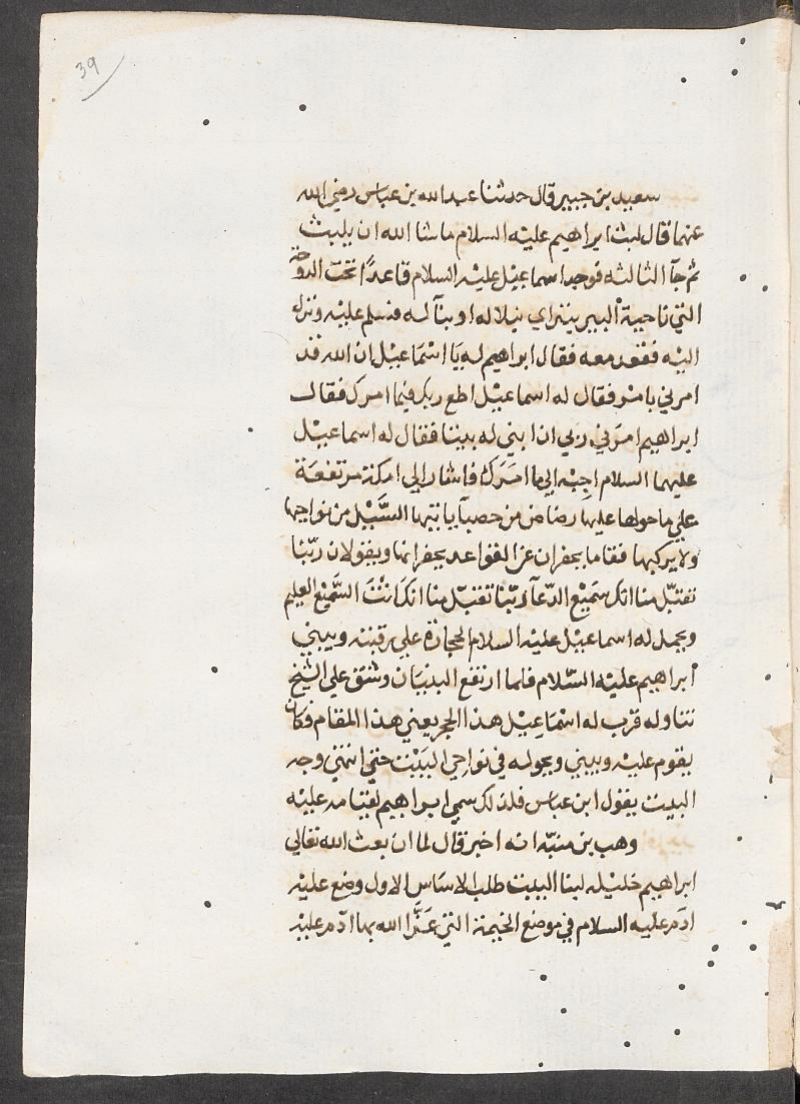 39
سعيد بن جبير قال حدثنا عبد الله بن عباس رضي الله
عنهما قال لبث ابراهيم عليه السلام ماشا الله ان يلبث
ثم جآ الثالثه فوجد اسماعيل عليه السلام قاعدًا تحت الدوحة
التي ناحية البير يبنراي نبلا له او بنآ له فسلم عليه ونزل
اليه فقعد معه فقال ابراهيم له يا اسماعيل ان الله قد
امرني بامر فقال له اسماعيل اطع ربك فيما امرك فقال
ابراهيم امرني ربي ان ابني له بيتا فقال له اسماعيل
عليهما السلام اجبه الي ما امرك فاشار الي امكنة مرتفعة
علي ماحولها عليها رضاض من حصبآ ياتيها السيل من نواحيها
ولا يركبها فقاما يحفران عن القواعد يحفرانها ويقولان ربنا
تقبّل منا انك سميع الدعآ ربنا تقبل منا انك انت السميع العليم
ويحمل له اسماعيل عليه السلام الحجارة علي رقبته ويبني
ابراهيم عليه السّلام فلما ارتفع البنيان وشق علي الشيخ
تناوله قرب له اسماعيل هذا الحجر يعني هذا المقام فكان
يقوم عليه ويبني ويحوله في نواحي البيت حتي انتهي وجه
البيت يقول ابن عباس فلذلك سمي ابراهيم لقيامه عليه
وهب بن منبّه انه اخبر قال لما ان بعث الله تعالي
ابراهيم خليله لبنا البيت طلب الاساس الاول وضع عليه
ادم عليه السلام في موضع الخيمة التي عَزَّا الله بها ادم عليه